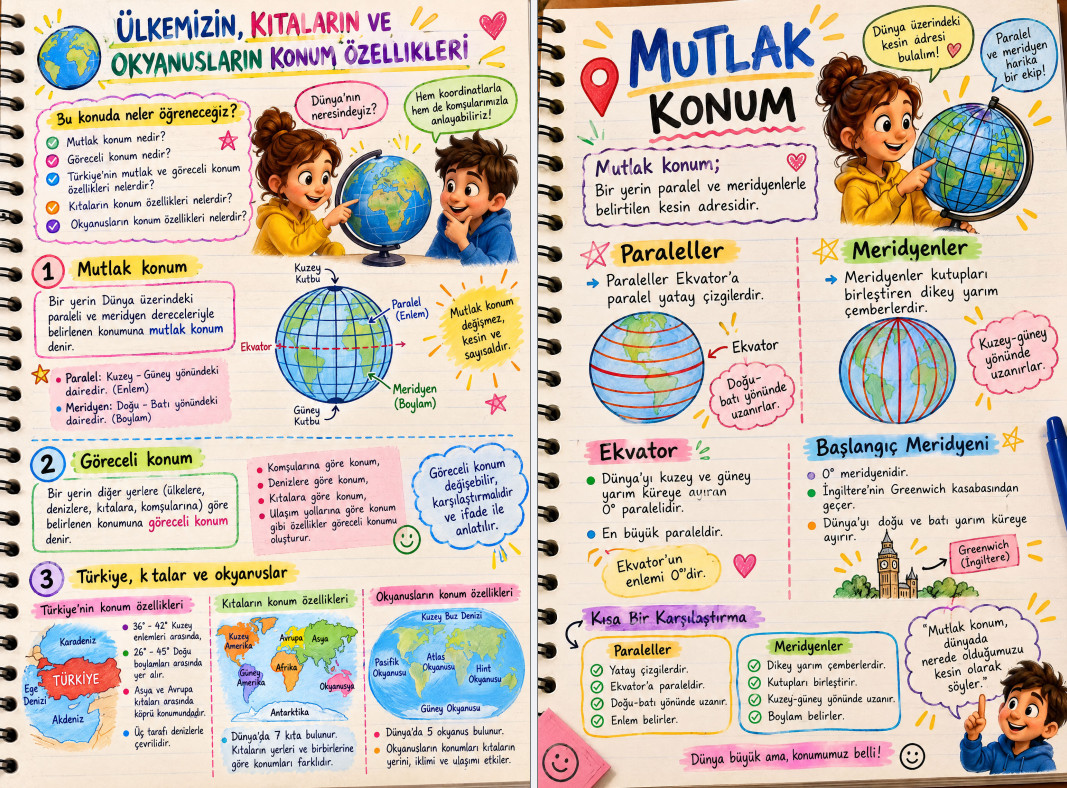 ÜLKEMİZİN, KITALARIN VE
OKYANUSLARIN KONUM ÖZELLİKLERİ
Bu konuda neler öğreneceğiz?
Mutlak konum nedir?
Göreceli konum nedir?
Türkiye'nin mutlak ve göreceli konum
özellikleri nelerdir?
Kıtaların konum özellikleri nelerdir?
Okyanusların konum özellikleri nelerdir?
Dünya'nın
neresindeyiz?
Hem koordinatlarla
hem de komşularımızla
anlayabiliriz!
1 Mutlak konum
Bir yerin Dünya üzerindeki
paraleli ve meridyen dereceleriyle
belirlenen konumuna mutlak konum
denir.
Paralel: Kuzey - Güney yönündeki
dairedir. (Enlem)
Meridyen: Doğu - Batı yönündeki
dairedir. (Boylam)
Kuzey
Kutbu
Paralel
(Enlem)
Ekvator
Meridyen
(Boylam)
Güney
Kutbu
Mutlak konum
değişmez,
kesin ve
sayısaldır.
2 Göreceli konum
Bir yerin diğer yerlere (ülkelere,
denizlere, kıtalara, komşularına) göre
belirlenen konumuna göreceli konum
denir.
Komşularına göre konum,
Denizlere göre konum,
Kıtalara göre konum,
Ulaşım yollarına göre konum
gibi özellikler göreceli konumu
oluşturur.
Göreceli konum
değişebilir,
karşılaştırmalıdır
ve ifade ile
anlatılır.
3 Türkiye, k talar ve okyanuslar
Türkiye'nin konum özellikleri
Karadeniz
TÜRKİYE
Ege
Denizi
Akdeniz
36° - 42° Kuzey
enlemleri arasında,
26° - 45° Doğu
boylamları arasında
yer alır.
Asya ve Avrupa
kıtaları arasında
köprü konumundadır.
Üç tarafı denizlerle
çevrilidir.
Kıtaların konum özellikleri
Kuzey
Amerika
Avrupa
Asya
Afrika
Güney
Amerika
Okyanusya
Antarktika
Dünya'da 7 kıta bulunur.
Kıtaların yerleri ve birbirlerine
göre konumları farklıdır.
Okyanusların konum özellikleri
Kuzey Buz Denizi
Pasifik
Okyanusu
Atlas
Okyanusu
Hint
Okyanusu
Güney Okyanusu
Dünya'da 5 okyanus bulunur.
Okyanusların konumları kıtaların
yerini, iklimi ve ulaşımı etkiler.
MUTLAK
KONUM
Dünya üzerindeki
kesin adresi
bulalım!
Paralel
ve meridyen
harika
bir ekip!
Mutlak konum;
Bir yerin paralel ve meridyenlerle
belirtilen kesin adresidir.
Paraleller
Paraleller Ekvator'a
paralel yatay çizgilerdir.
Ekvator
Doğu-
batı yönünde
uzanırlar.
Meridyenler
Meridyenler kutupları
birleştiren dikey yarım
çemberlerdir.
Kuzey-güney
yönünde
uzanırlar.
Ekvator
Dünya'yı kuzey ve güney
yarım küreye ayıran
0° paralelidir.
En büyük paraleldir.
Ekvator'un
enlemi 0°'dir.
Başlangıç Meridyeni
0° meridyenidir.
İngiltere'nin Greenwich kasabasından
geçer.
Dünya'yı doğu ve batı yarım küreye
ayırır.
Greenwich
(İngiltere)
Kısa Bir Karşılaştırma
Paraleller
Yatay çizgilerdir.
Ekvator'a paraleldir.
Doğu-batı yönünde uzanır.
Enlem belirler.
Meridyenler
Dikey yarım çemberlerdir.
Kutupları birleştirir.
Kuzey-güney yönünde uzanır.
Boylam belirler.
"Mutlak konum,
dünyada
nerede olduğumuzu
kesin olarak
söyler."
Dünya büyük ama, konumumuz belli!